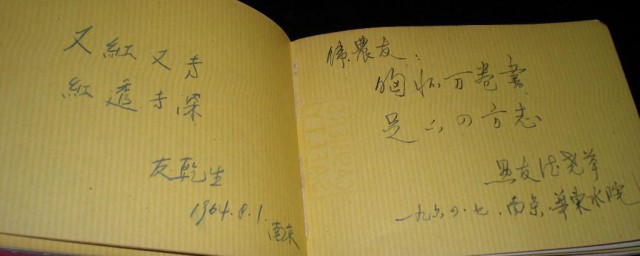 又紅又专
紅透专深
友乾生
1964.8.1.
南京
農友：
胸怀万卷書
方志
友
一九六四.七.南京.華東水院